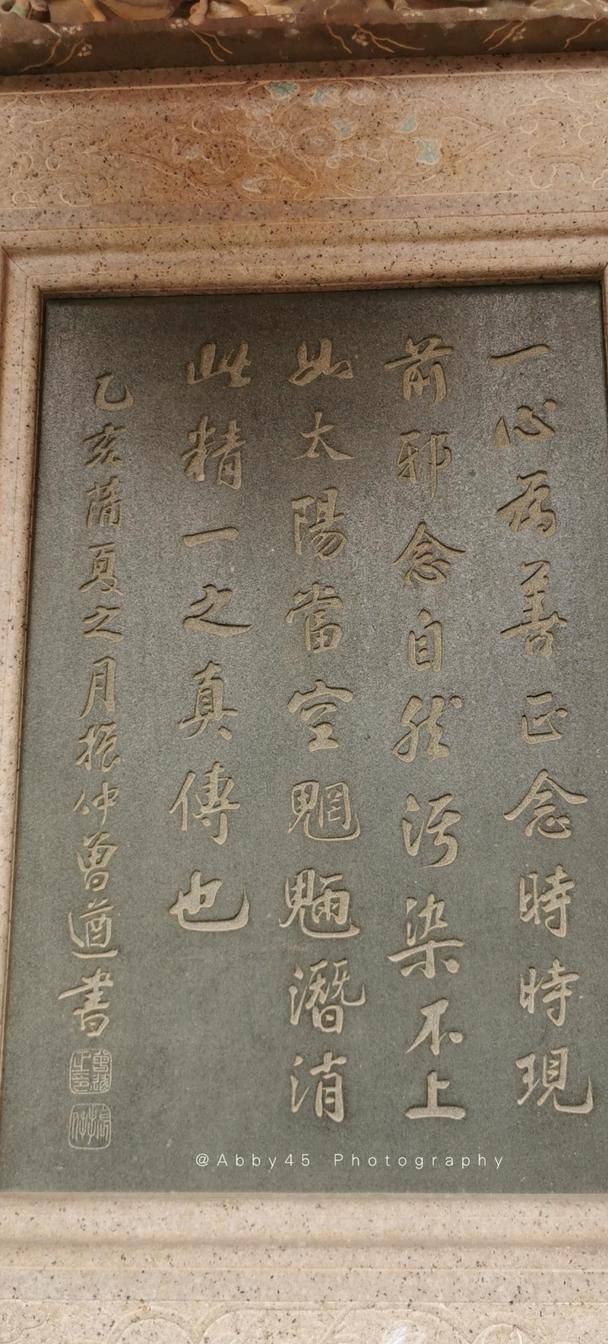 一心為善正念時時現
前邪念自然污染不上
如太陽當空魍魎潛消
此精一之真傳也
乙亥蒲夏之月振仲曾遒書
@Abby45 Photography